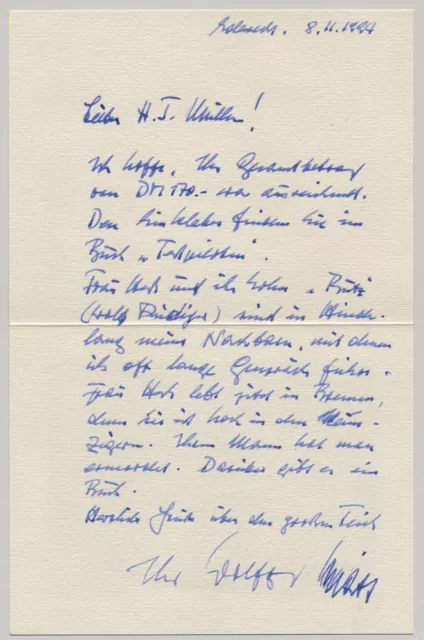 8.11.1994
Lieber H. J. Müller!
Ich hoffe, Ihr Gesamtbetrag
von DM 770.- war ausreichend.
Den Einkleber finden Sie im
Buch „Testpiloten“.
Frau Heß und ihr Sohn „Butz“
(Wolf Rüdiger) sind in Hinde-
lang meine Nachbarn, mit denen
ich oft lange Gespräche führe.
Frau Heß lebt jetzt in Bremen,
denn Sie ist hoch in den Neun-
zigern. Ihren Mann hat man
ermordet. Darüber gibt es ein
Buch.
Herzliche Grüße über den großen Teich
Ihr Wolfgang Späte